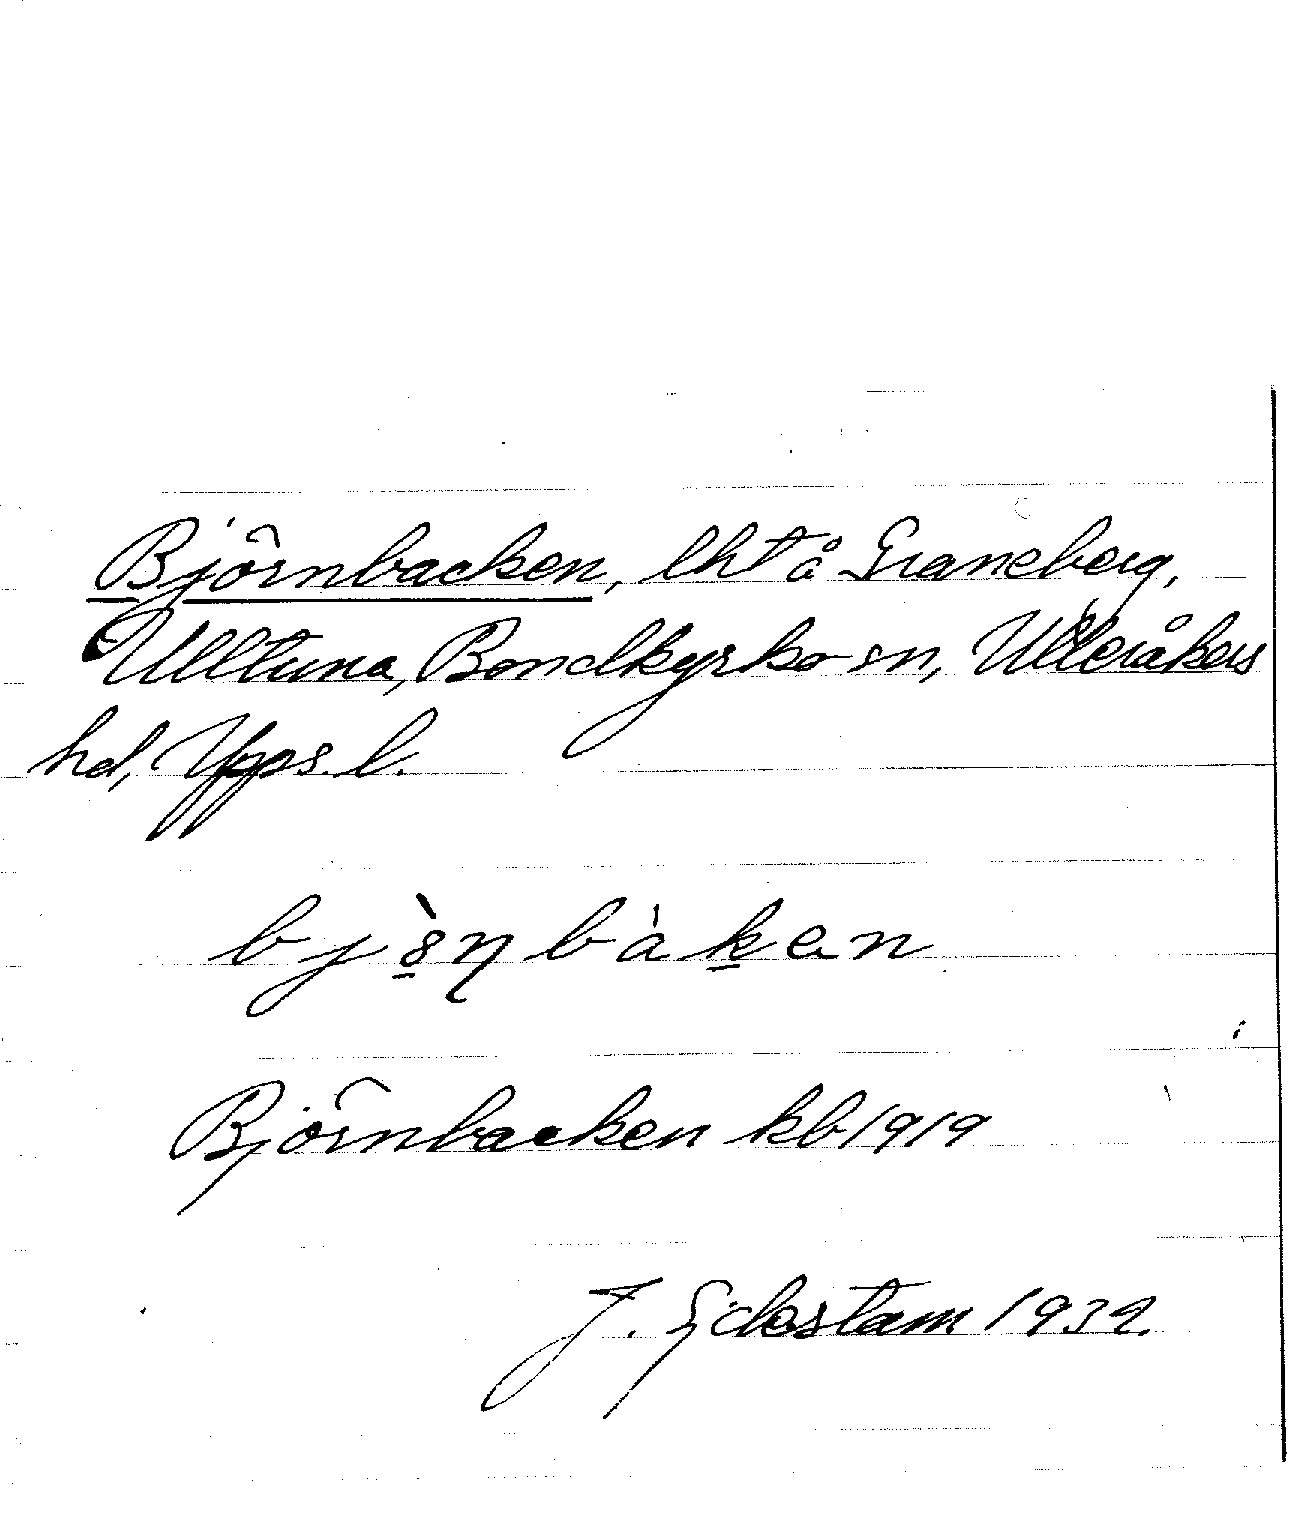 Björnbacken, lht å Graneberg,
Ulltuna, Bondkyrko sn, Ulleråkers
hd, Upps. l.
bjö̀ṇbàken
Björnbacken kb 1919
J. Ejdestam 1939.